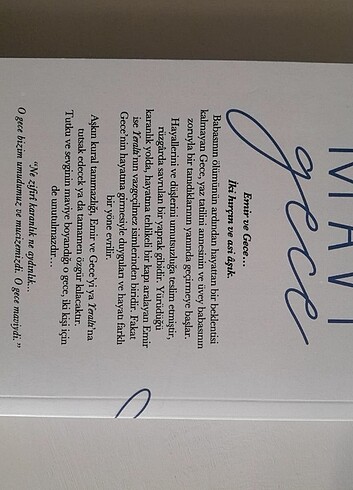 MAVİ
gece
Emir ve Gece…
İki hırçın ve asi âşık.
Babasının ölümünün ardından hayattan bir beklentisi
kalmayan Gece, yaz tatilini annesinin ve üvey babasının
zoruyla bir tanıdıklarının yanında geçirmeye başlar.
Hayallerini ve düşlerini umutsuzluğa teslim etmiştir,
rüzgârda savrulan bir yaprak gibidir. Yürüdüğü
karanlık yolda, hayatına tehlikeli bir kapı aralayan Emir
ise Yeraltı'nın vazgeçilmez isimlerinden biridir. Fakat
Gece'nin hayatına girmesiyle duyguları ve hayatı farklı
bir yöne evrilir.
Aşkın kural tanımazlığı, Emir ve Gece'yi ya Yeraltı'na
tutsak edecek ya da tamamen özgür kılacaktır.
Tutku ve sevginin maviye boyandığı o gece, iki kişi için
de unutulmazdır…
"Ne zifiri karanlık ne aydınlık…
O gece bizim umudumuz ve mucizemizdi. O gece maviydi."